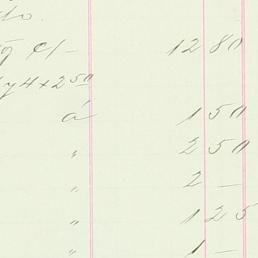 do.
c/- 12 80
y 4 x 2 50
á 1 50
" 2 50
" 2 -
" 1 25
" 1 -